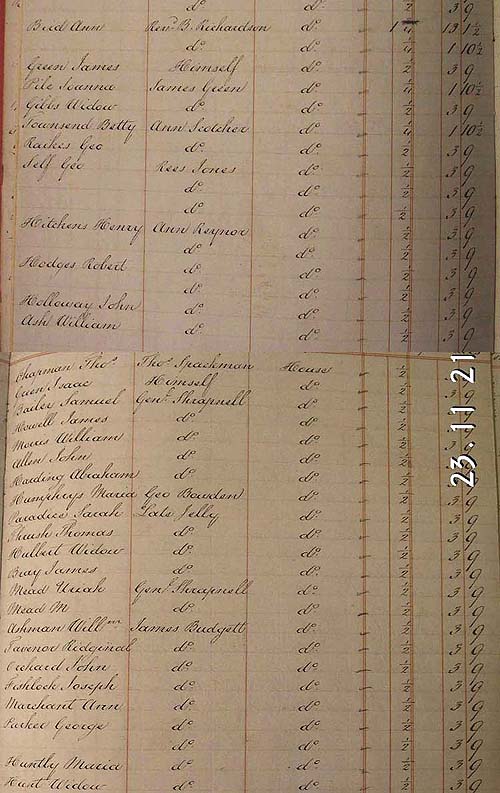 do do 1/2 3 9
Bird Ann Revd B. Richardson do 1 1/4 13 1 1/2
do do 1/4 1 10 1/2
Green James Himself do 1/2 3 9
Pile Joanna James Green do 1/4 1 10 1/2
Gibbs Widow do do 1/2 3 9
Townsend Betty Ann Scotcher do 1/4 1 10 1/2
Raikes Geo do do 1/2 3 9
Self Geo Rees Jones do 1/2 3 9
do do 1/2 3 9
do do 1/2 3 9
Hitchens Henry Ann Reynor do 1/2 3 9
do do 1/2 3 9
Hodges Robert do do 1/2 3 9
do do 1/2 3 9
Holloway John do do 1/2 3 9
Ash William do do 1/2 3 9
Chapman Thos Thos Spackman House 1/2 3 9
Isaac Himself do 1/2 3 9
Bailey Samuel Genl Shrapnell do 1/2 3 9
Howell James do do 1/2 3 9
Morris William do do 1/2 3 9
Allen John do do 1/2 3 9
Harding Abraham do do 1/2 3 9
Humphrys Maria Geo Bowden do 1/2 3 9
Paradice Sarah Late Jelly do 1/2 3 9
Thrush Thomas do do 1/2 3 9
Hulbert Widow do do 1/2 3 9
Bray James do do 1/2 3 9
Mead Uriah Genl Shrapnell do 1/2 3 9
Mead M do do 1/2 3 9
Ashman Willm James Budgett do 1/2 3 9
Tavenor Ridginal do do 1/2 3 9
Orchard John do do 1/2 3 9
Fishlock Joseph do do 1/2 3 9
Marchant Ann do do 1/2 3 9
Parker George do do 1/2 3 9
do do 1/2 3 9
Huntly Maria do do 1/2 3 9
Hunt Widow do do 1/2 3 9
23 11 21